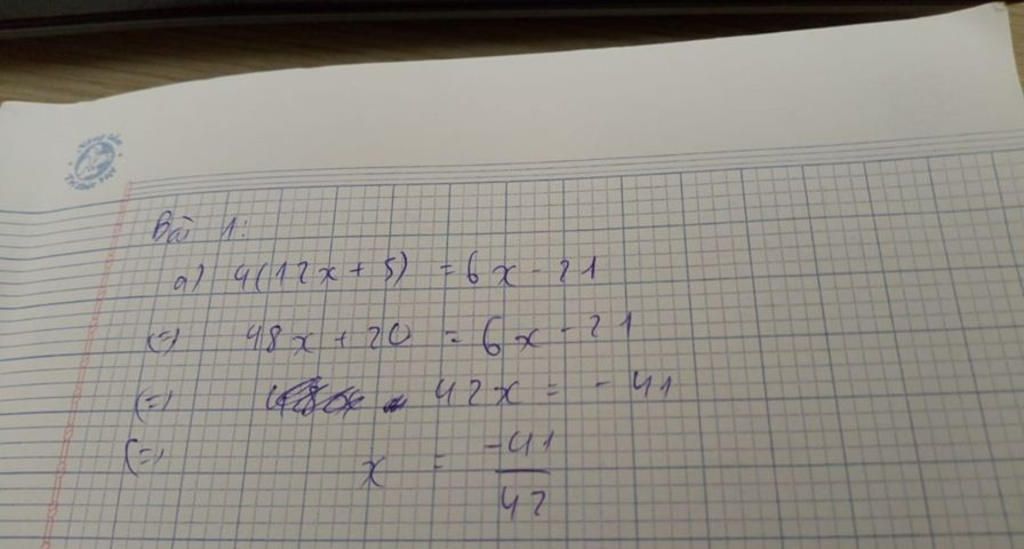 Bài 1:
a) 4(12x + 5) = 6x - 21
(=) 48x + 20 = 6x - 21
(=) 42x = - 41
(=) x = -41/42